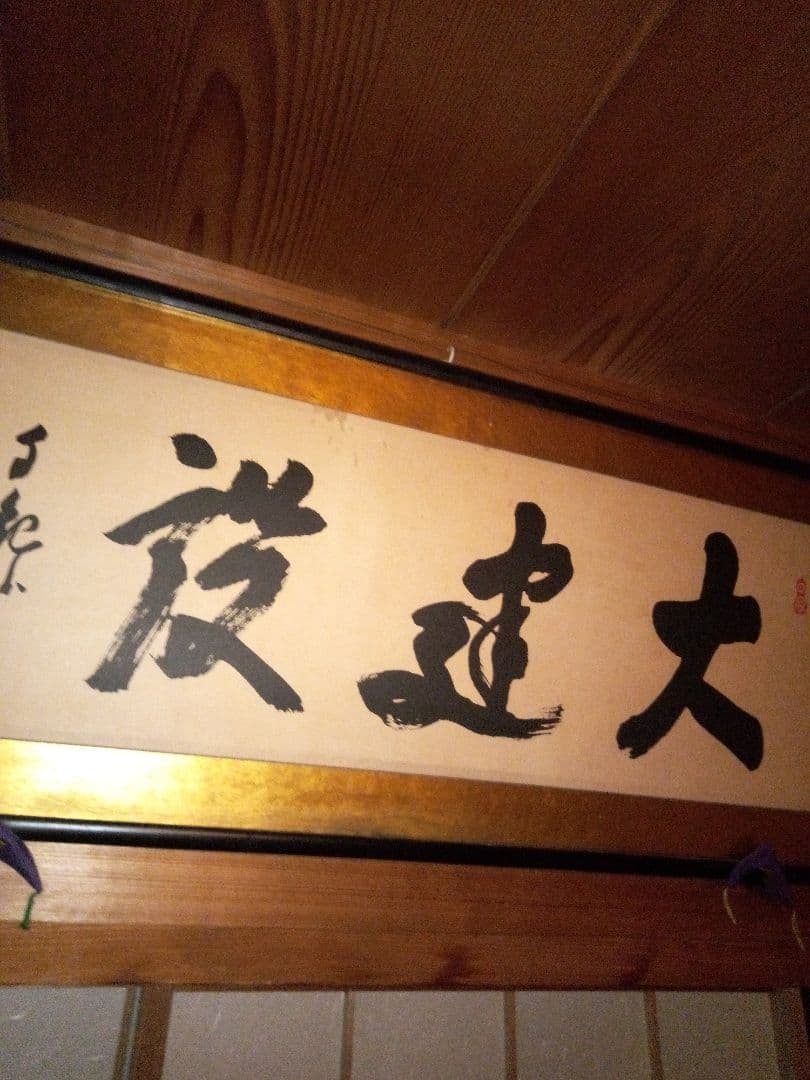 大建設